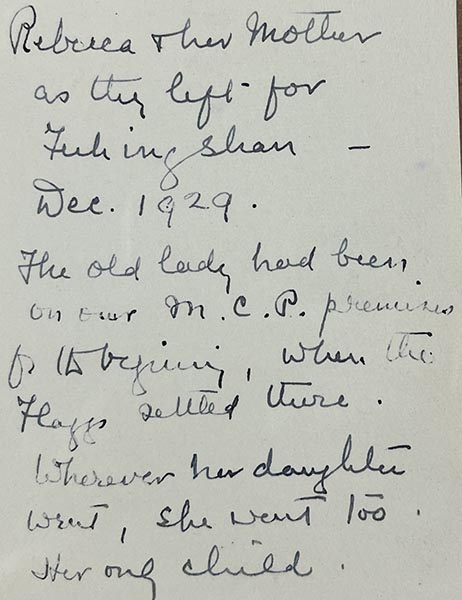 Rebecca & her Mother
as they left for
Fuhingshan –
Dec. 1929.
The old lady had been
on our M.C.P. premises
fr its begining, when the
Flaggs settled there.
Wherever her daughter
went, she went too.
Her only child.